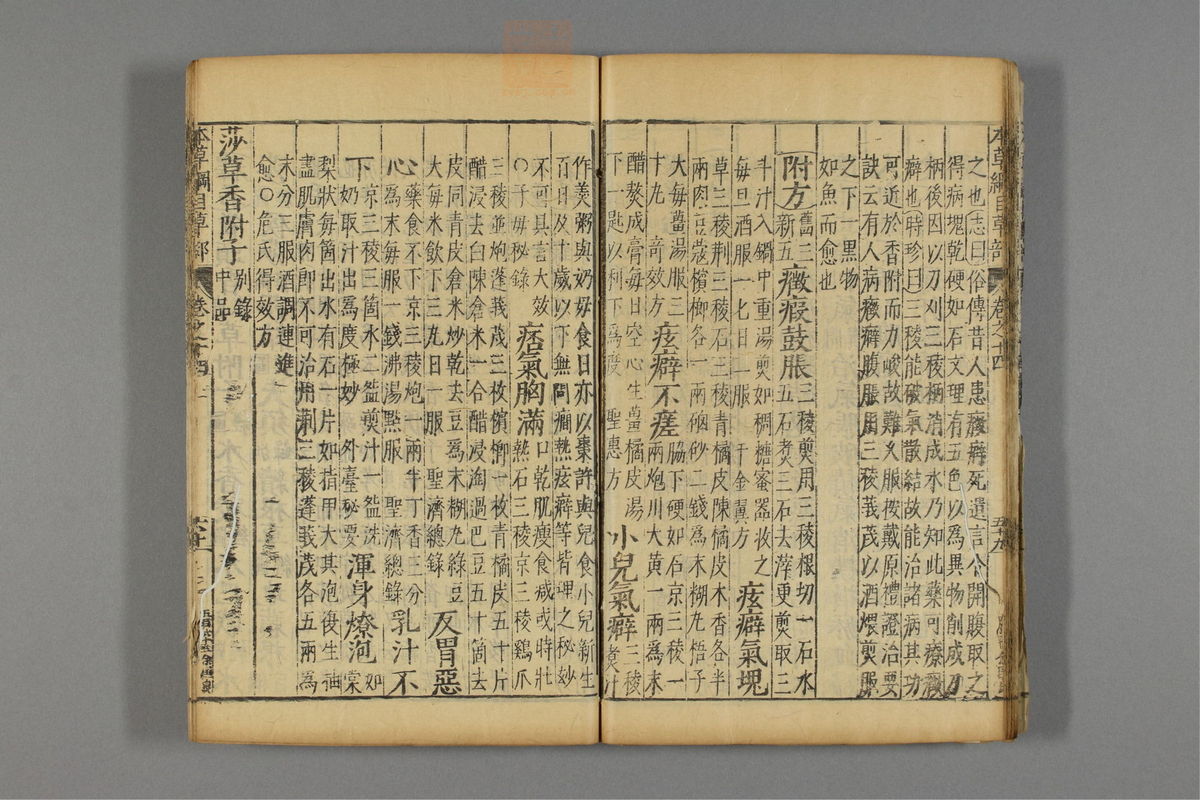 本草綱目草部 卷之十四
之也志曰俗傳昔人患癥癖死遺言令開腹取之
得病塊乾硬如石文理有五色以爲異物削成刀
柄後因以刀刈三稜柄消成水乃知此藥可療癥
癖也時珍曰三稜能破氣散結故能治諸病其功
可近於香附而力峻故難久服按戴原禮證治要
訣云有人病癥癖腹脹用三稜莪茂以酒煨煎服
之下一黑物
如魚而愈也
附方 舊三新五 癥瘕鼓脹 三稜煎用三稜根切一石水五石煮三石去滓更煎取三
斗汁入鍋中重湯煎如稠糖蜜器收之
每旦酒服一匕日二服 千金翼方 痃癖氣塊
草三稜荆三稜石三稜青橘皮陳橘皮木香各半
兩肉豆蔻檳榔各一兩硇砂二錢爲末糊丸梧子
大每薑湯服三
十丸 奇效方 痃癖不瘥 脇下硬如石京三稜一兩炮川大黃一兩爲末
醋熬成膏每日空心生薑橘皮湯
下一匙以利下爲度 聖惠方 小兒氣癖 三稜煮汁
作羹粥與奶母食日亦以棗許與兒食小兒新生
百日及十歲以下無問癎熱痃癖等皆理之秘妙
不可具言大效
子母秘錄 痞氣胸滿 口乾肌瘦食減或時壯熱石三稜京三稜雞爪
三稜並炮蓬莪茂三枚檳榔一枚青橘皮五十片
醋浸去白陳倉米一合醋浸淘過巴豆五十箇去
皮同青皮倉米炒乾去豆爲末糊丸綠豆
大每米飲下三丸日一服 聖濟總錄 反胃惡
心 藥食不下京三稜炮一兩半丁香三分爲末每服一錢沸湯點服 聖濟總錄 乳汁不
下 京三稜三箇水二盌煎汁一盌洗奶取汁出爲度極妙 外臺秘要 渾身燎泡 如棠
梨狀每箇出水有石一片如指甲大其泡復生抽
盡肌膚肉即不可治用荆三稜蓬莪茂各五兩爲
末分三服酒調連進
愈 危氏得效方
莎草香附子 別錄中品
本草綱目草部 卷之十四